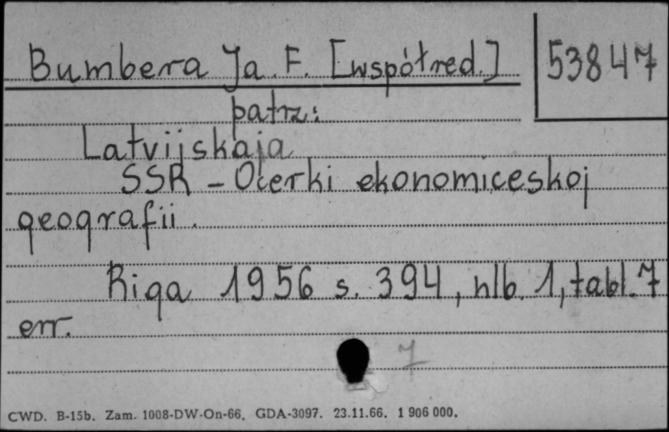 Bumbera Ja. F. [współred.]
53847
patrz:
Latvijskaja
SSR - Očerki ekonomiceskoj
geografii.
Riga 1956 s. 394, nlb. 1, tabl. 7
err.
7
CWD. B-15b. Zam. 1008-DW-On-66. GDA-3097. 23.11.66. 1 906 000.